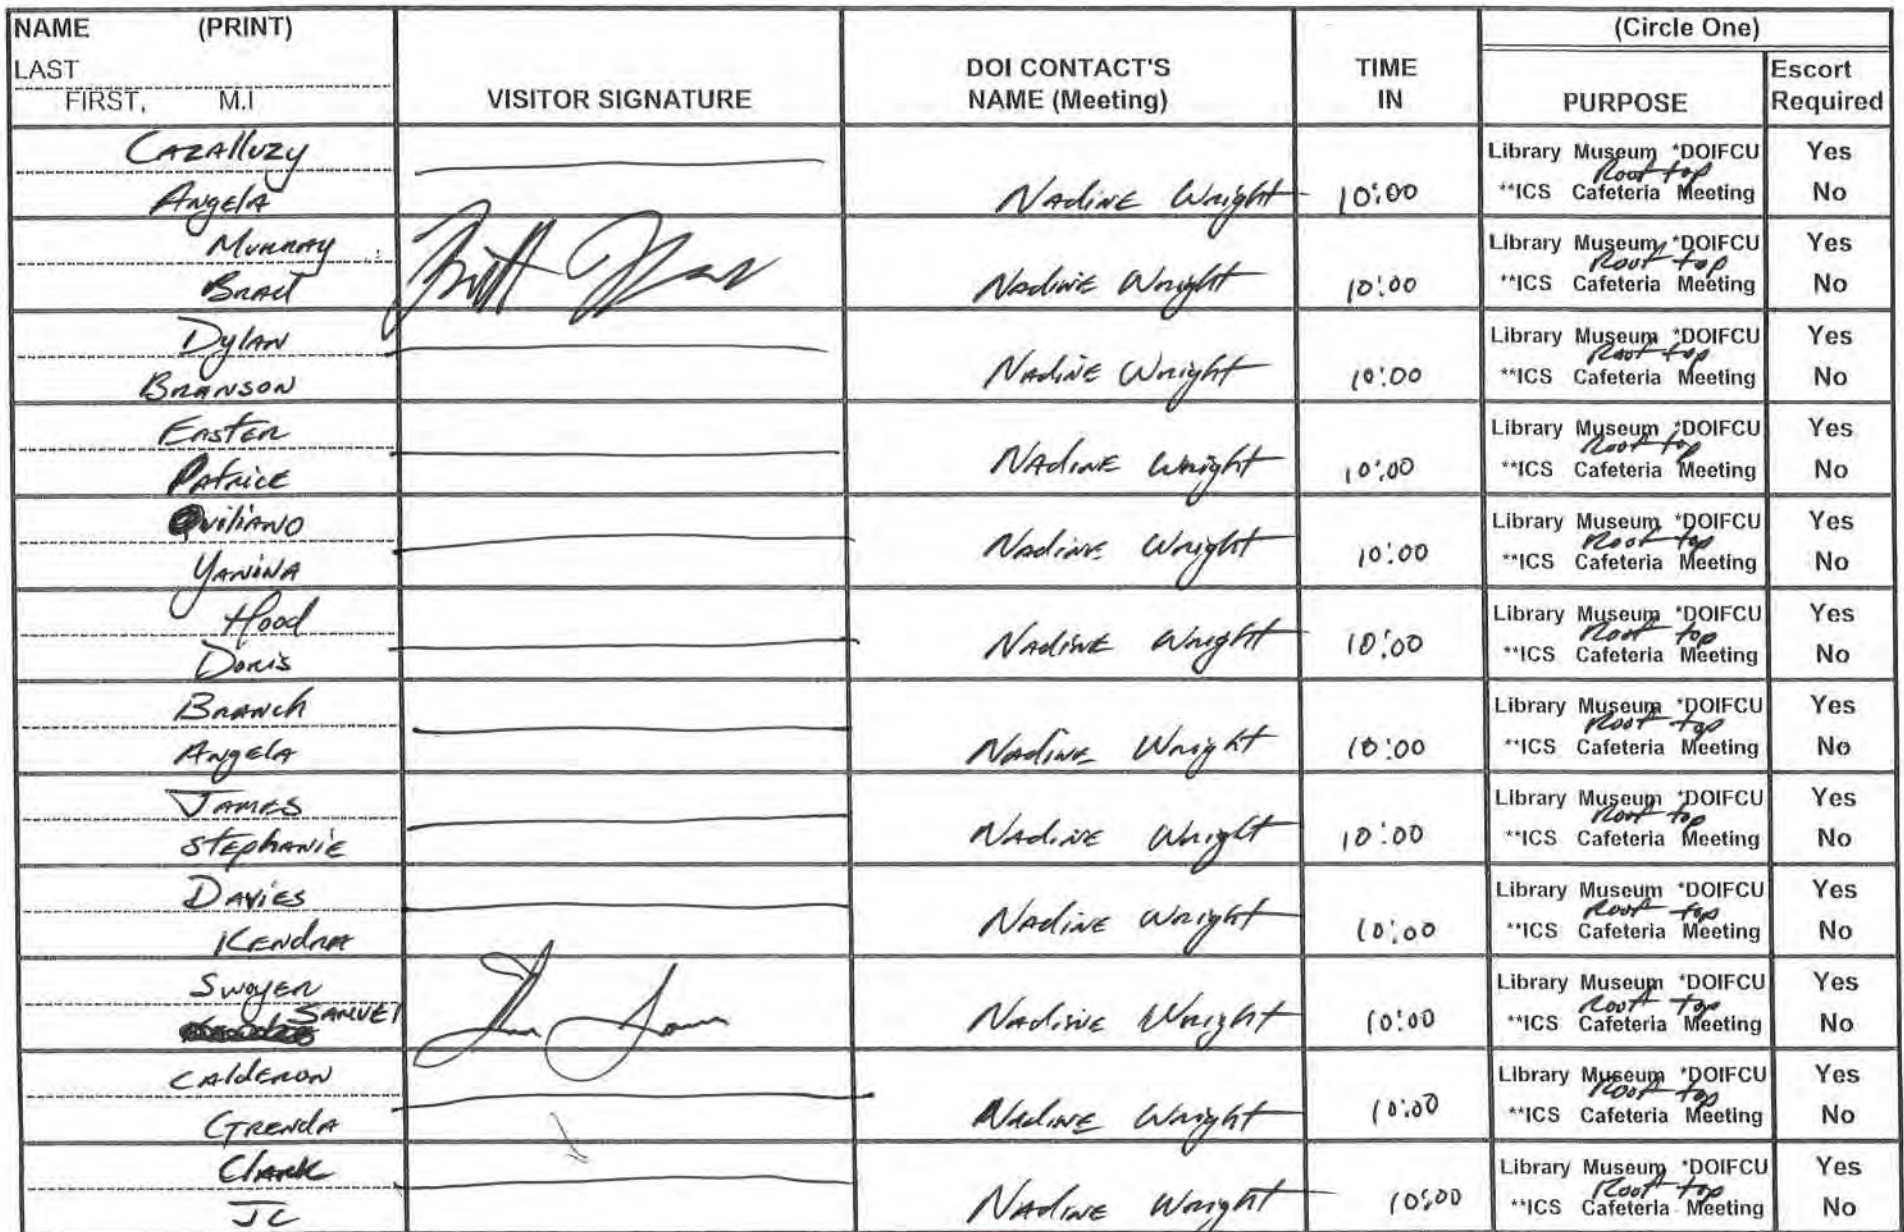 NAME (PRINT)
LAST
FIRST, M.I
VISITOR SIGNATURE
DOI CONTACT'S
NAME (Meeting)
TIME
IN
(Circle One)
PURPOSE
Escort
Required
Cazalluzy
Angela
Nadine Wright 10:00
Library Museum *DOIFCU Yes
Roof top
**ICS Cafeteria Meeting No
Murray
Nadine Wright 10:00
Library Museum *DOIFCU Yes
Roof top
**ICS Cafeteria Meeting No
Dylan
Branson
Nadine Wright 10:00
Library Museum *DOIFCU Yes
Roof top
**ICS Cafeteria Meeting No
Easter
Patrice
Nadine Wright 10:00
Library Museum *DOIFCU Yes
Roof top
**ICS Cafeteria Meeting No
Quiliano
Yanina
Nadine Wright 10:00
Library Museum *DOIFCU Yes
Roof top
**ICS Cafeteria Meeting No
Hood
Doris
Nadine Wright 10:00
Library Museum *DOIFCU Yes
Roof top
**ICS Cafeteria Meeting No
Branch
Angela
Nadine Wright 10:00
Library Museum *DOIFCU Yes
Roof top
**ICS Cafeteria Meeting No
James
Stephanie
Nadine Wright 10:00
Library Museum *DOIFCU Yes
Roof top
**ICS Cafeteria Meeting No
Davies
Kendra
Nadine Wright 10:00
Library Museum *DOIFCU Yes
Roof top
**ICS Cafeteria Meeting No
Swoyer
Samuel
Nadine Wright 10:00
Library Museum *DOIFCU Yes
Roof top
**ICS Cafeteria Meeting No
Calderon
Grenda
Nadine Wright 10:00
Library Museum *DOIFCU Yes
Roof top
**ICS Cafeteria Meeting No
Clark
JC
Nadine Wright 10:00
Library Museum *DOIFCU Yes
Roof top
**ICS Cafeteria Meeting No